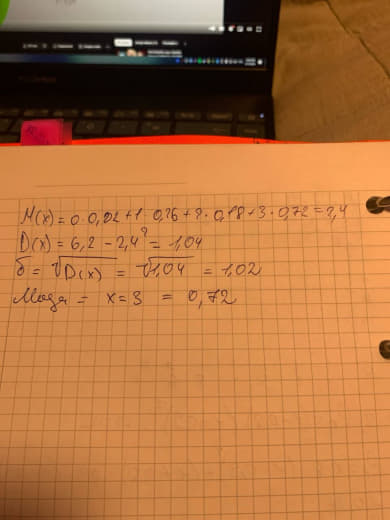 M(x) = 0·0,02+1·0,16+2·0,18+3·0,72=2,4
D(x) = 6,2 - 2,4² = 1,04
б = √D(x) = √1,04 = 1,02
Мода = x=3 = 0,72